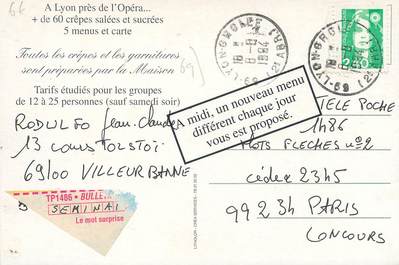 66
A Lyon près de l'Opéra...
+ de 60 crêpes salées et sucrées
5 menus et carte
Toutes les crêpes et les garnitures
sont préparées par la Maison
69
Tarifs étudiés pour les groupes
de 12 à 25 personnes (sauf samedi soir)
midi, un nouveau menu
différent chaque jour
vous est proposé.
RODULFO Jean-Claude
13 cours TOLSTOI
69100 VILLEURBANNE
TP1486 • BULLE
SEMINAI
Le mot surprise
TELE POCHE
1486
MOTS FLECHES n°2
cédex 2345
99234 PARIS
CONCOURS